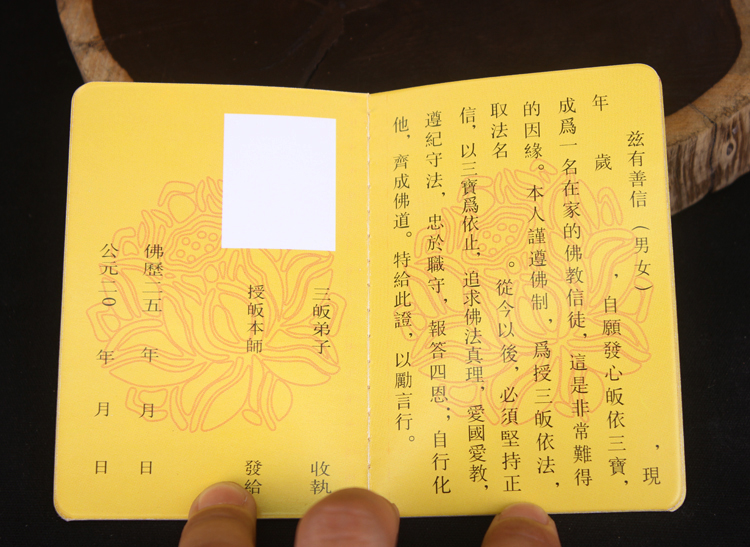 茲有善信（男女），現
年 歲，自願發心皈依三寶，
成爲一名在家的佛教信徒，這是非常難得
的因緣。本人謹遵佛制，爲授三皈依法，
取法名 。從今以後，必須堅持正
信，以三寶爲依止，追求佛法真理，愛國愛教，
遵紀守法，忠於職守，報答四恩；自行化
他，齊成佛道。特給此證，以勵言行。
三皈弟子 收執
授皈本師 發給
佛歷二五 年 月 日
公元二〇 年 月 日